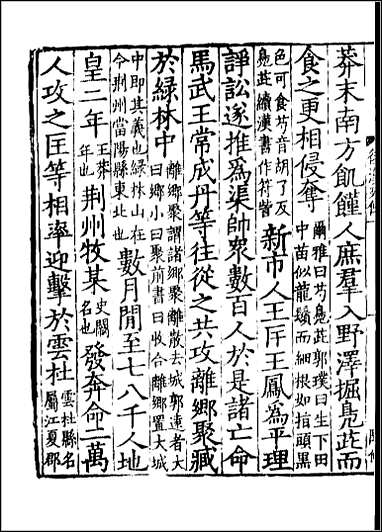 莽末南方飢饉人庶羣入野澤掘鳧茈而
食之更相侵奪爾雅曰芍鳧茈郭璞曰生下田
中苗似龍鬚而細根如指頭黑
色可食芍音胡了反
鳧茈續漢書作符訾新市人王匡王鳳爲平理
諍訟遂推爲渠帥衆數百人於是諸亡命
馬武王常成丹等往從之共攻離鄉聚藏
於綠林中離鄉聚謂諸鄉聚離散去城郭遠者大
曰鄉小曰聚前書曰收合離鄉置大城
中即其義也綠林山在
今荆州當陽縣東北也數月閒至七八千人地
皇二年王莽
年也荆州牧某史闕
名也發奔命二萬
人攻之匡等相率迎擊於雲杜雲杜縣名
屬江夏郡